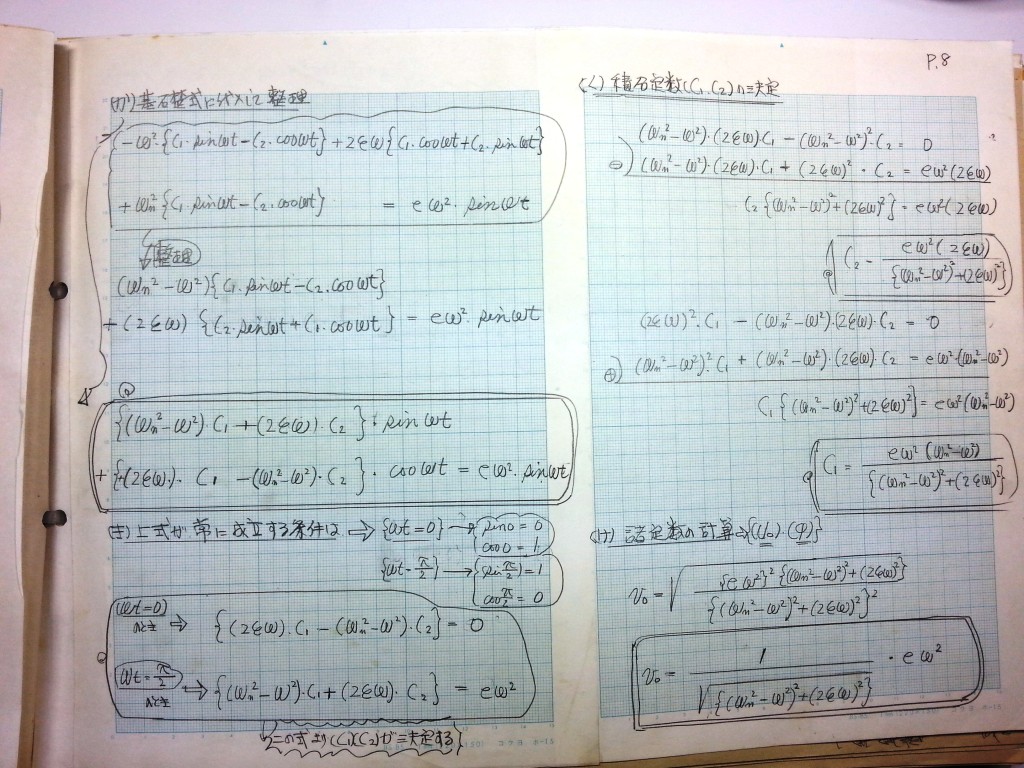 P.8
(カ) 基石礎式に代入して整理
{-ω²{C₁·sinωt-C₂·cosωt}+2εω{C₁·cosωt+C₂·sinωt}
+ωn²{C₁·sinωt-C₂·cosωt} = eω²·sinωt
整理
(ωn²-ω²){C₁·sinωt-C₂·cosωt}
+(2εω){C₂·sinωt+C₁·cosωt} = eω²·sinωt
{(ωn²-ω²)·C₁+(2εω)·C₂}·sinωt
+{(2εω)·C₁-(ωn²-ω²)·C₂}·cosωt = eω²·sinωt
(き) 上式が常に成立する条件は ⇒ {ωt=0} → {sin0=0
cos0=1
{ωt=π/2} → {sin π/2)=1
cos π/2=0
(ωt=0)
のとき ⇒ {(2εω)·C₁-(ωn²-ω²)·C₂} = 0
(ωt=π/2)
のとき → {(ωn²-ω²)·C₁+(2εω)·C₂} = eω²
この式より(C₁)(C₂)が決定する}
(く) 積分定数(C₁,C₂)の決定
(ωn²-ω²)·(2εω)·C₁-(ωn²-ω²)²·C₂ = 0
⊖) (ωn²-ω²)·(2εω)·C₁+(2εω)²·C₂ = eω²(2εω)
C₂{(ωn²-ω²)²+(2εω)²} = eω²(2εω)
C₂ = eω²(2εω) / {(ωn²-ω²)²+(2εω)²}
(2εω)²·C₁-(ωn²-ω²)·(2εω)·C₂ = 0
⊕) (ωn²-ω²)²·C₁+(ωn²-ω²)·(2εω)·C₂ = eω²·(ωn²-ω²)
C₁{(ωn²-ω²)²+(2εω)²} = eω²(ωn²-ω²)
C₁ = eω²(ωn²-ω²) / {(ωn²-ω²)²+(2εω)²}
(け) 諸定数の計算 {(v₀)·(φ)}
v₀ = √{eω²}²{(ωn²-ω²)²+(2εω)²} / {(ωn²-ω²)²+(2εω)²}²
v₀ = 1 / √{(ωn²-ω²)²+(2εω)²} · eω²